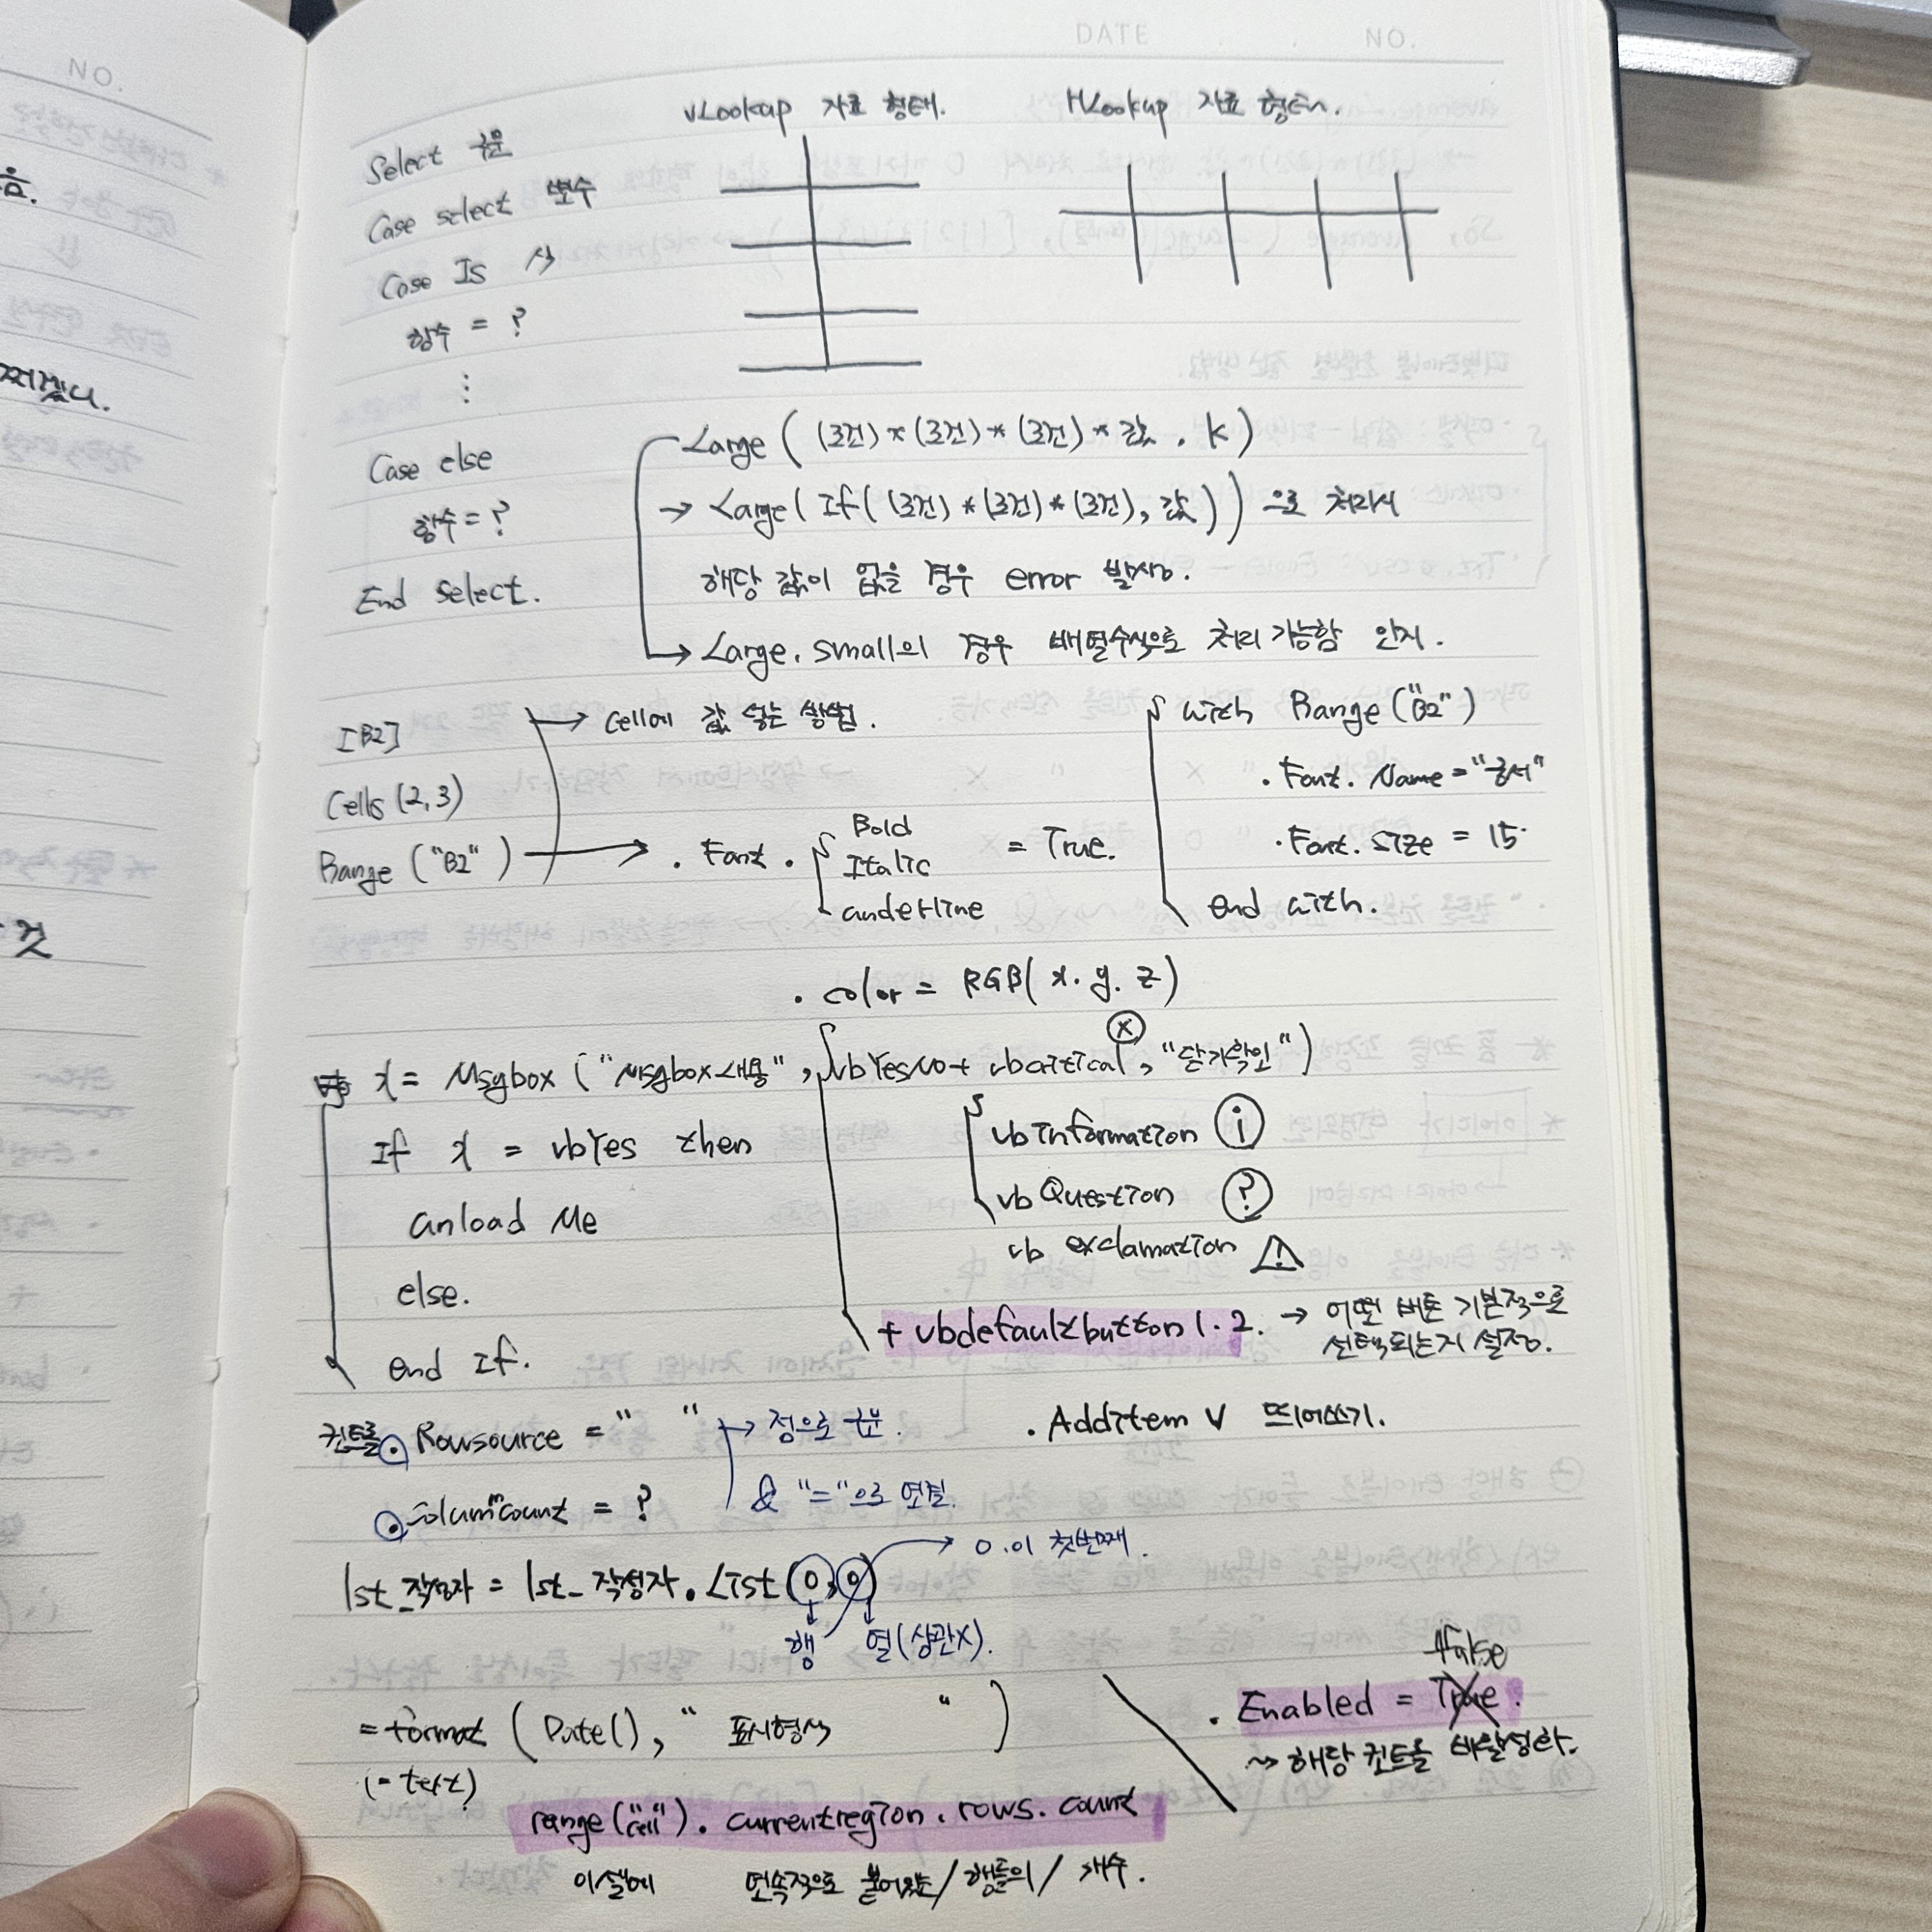 DATE . . NO.
NO.
음.
쩌겠니.
것
vLookup 자료 형태.
HLookup 자료 형태.
Select 구문
Case select 변수
Case Is 식
함수 = ?
⋮
Case else
함수 = ?
End select.
Large ( (조건) * (조건) * (조건) * 값 , k )
→ Large ( If ( (조건) * (조건) * (조건), 값 ) ) 으로 처리시
해당 값이 없을 경우 error 발생.
→ Large, small의 경우 배열수식으로 처리 가능함 인지.
[B2]
Cells (2,3)
Range ("B2")
→ Cell에 값 넣는 방법.
→ . Font .
Bold
Italic
underline
= True.
with Range ("B2")
. Font. Name = "궁서"
. Font. size = 15
end with.
. color = RGB( x. y. z )
x = Msgbox ("Msgbox내용", vbYesNo + vbcritical, "닫기확인")
ⓧ
If x = vbYes then
unload Me
else.
end If.
vb information ⓘ
vb Question ?
vb exclamation ⚠
+ vbdefaultbutton 1. 2. → 어떤 버튼 기본적으로
선택되는지 설정.
컨트롤 . Rowsource = " "
→ 점으로 구분.
& "="으로 연결.
. Additem ∨ 띄어쓰기.
. Columncount = ?
lst_작성자 = lst_작성자. List (0, 0)
→ 0.이 첫번째.
행
열(상관X).
= format ( Date(), " 표시형식 " )
(= text)
false
. Enabled = True.
~> 해당 컨트롤 비활성화.
range("cell"). currentregion. rows. count
이 셀에 연속적으로 붙어있는 / 행들의 / 개수.